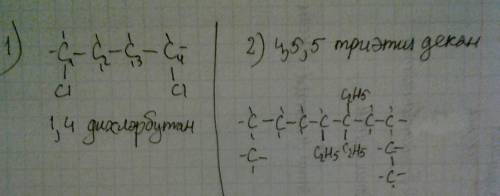 1) -C₁-C₂-C₃-C₄-
Cl Cl
1,4 дихлорбутан
2) 4,5,5 триэтил декан
C₂H₅
-C-C-C-C-C-C-C-
-C- C₂H₅ C₂H₅ -C-
-C-